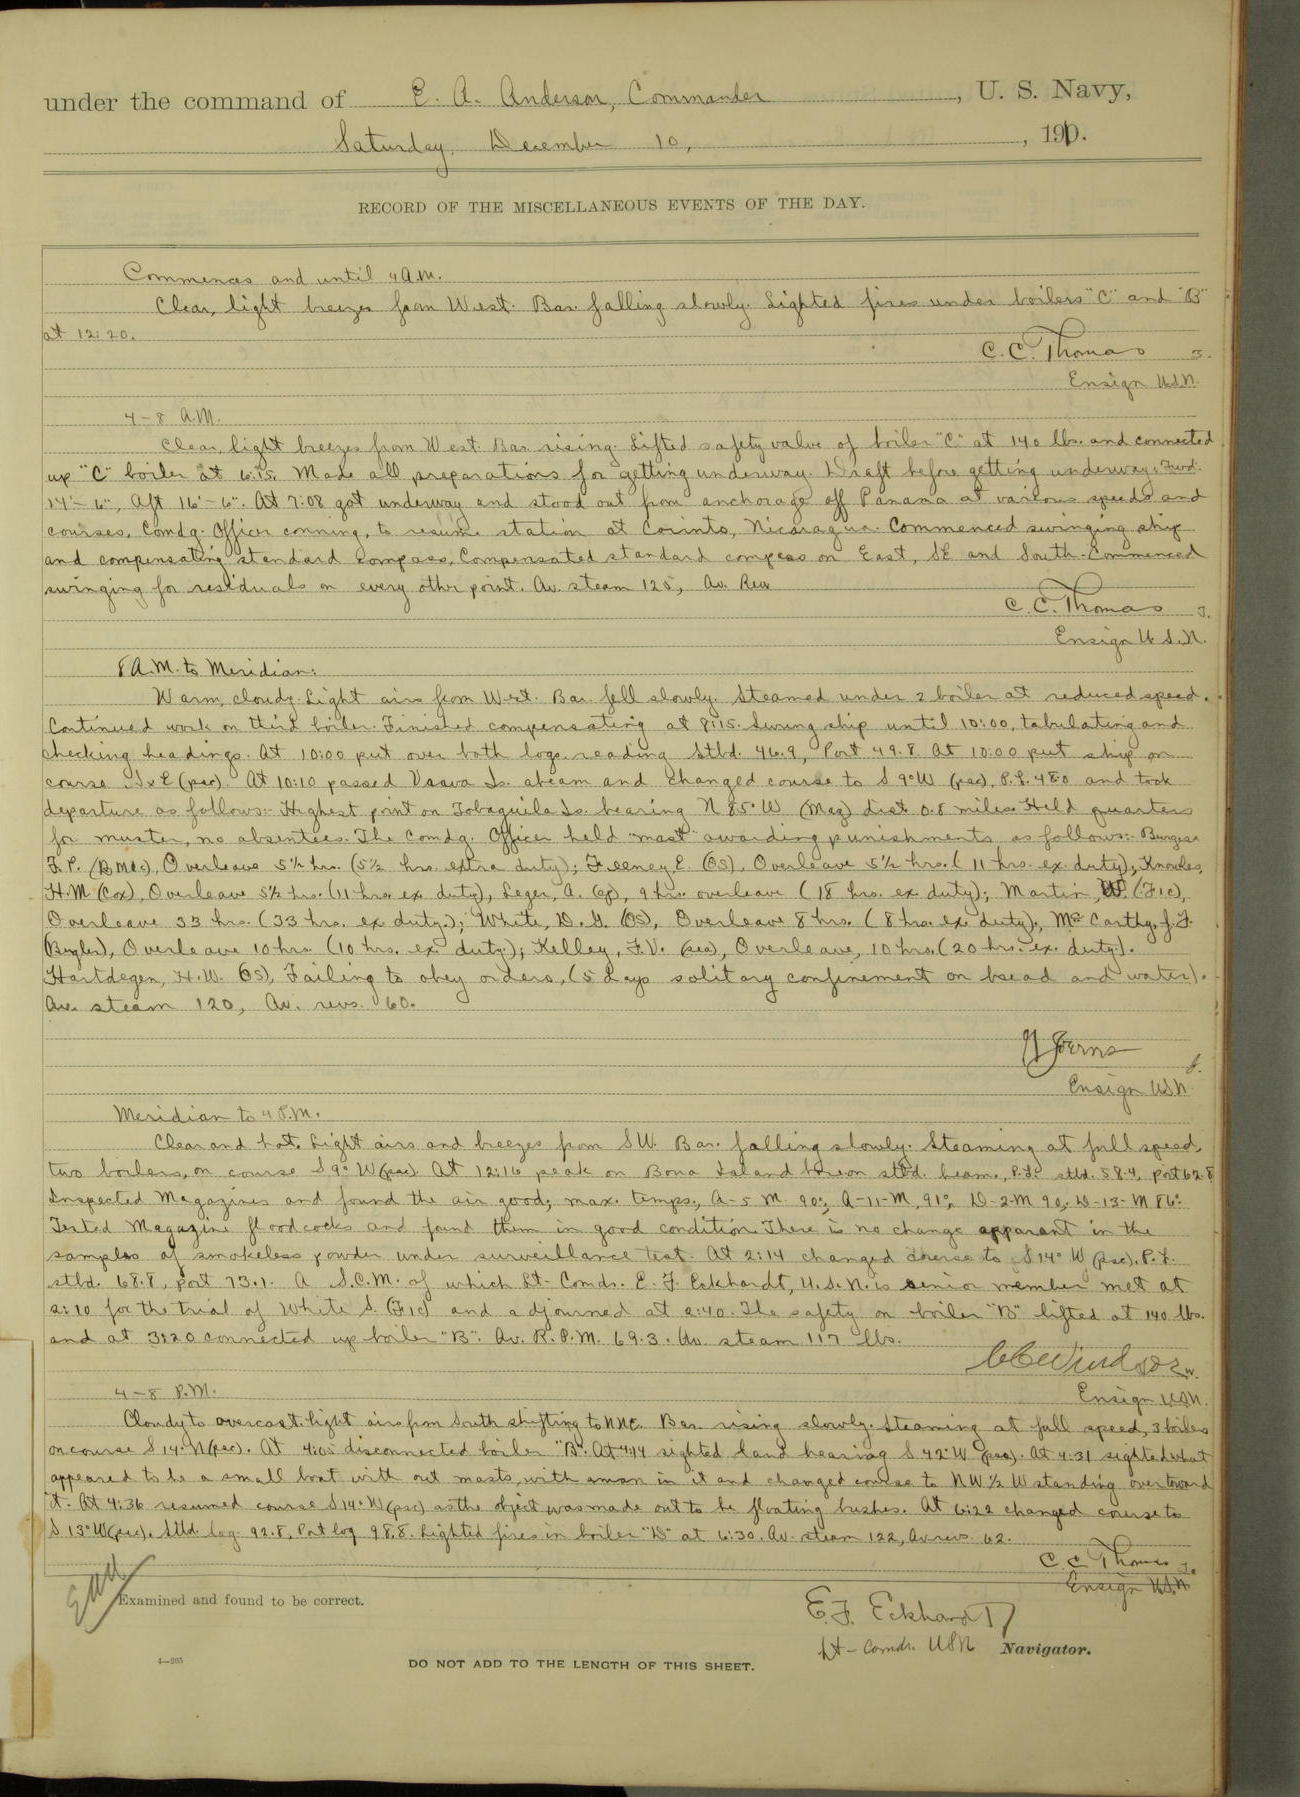 under the command of E. A. Anderson, Commander, U. S. Navy,
Saturday, December 10, 1910.
RECORD OF THE MISCELLANEOUS EVENTS OF THE DAY.
Commences and until 4 A.M.
Clear, light breezes from West. Bar. falling slowly. Lighted fires under boilers "C" and "B"
at 12:20.
C. C. Thomas
Ensign U.S.N.
4-8 A.M.
Clear, light breezes from West. Bar. rising. Lifted safety valve of boiler "C" at 140 lbs. and connected
up "C" boiler at 6:15. Made all preparations for getting underway. Draft before getting underway: Fwd.
14'-6", Aft 16'-6". At 7:08 got underway and stood out from anchorage off Panama at various speeds and
courses, Comdg. Officer conning, to resume station at Corinto, Nicaragua. Commenced swinging ship
and compensating standard compass. Compensated standard compass on East, SE and South. Commenced
swinging for residuals on every other point. Av. steam 125, Av. Rev
C. C. Thomas
Ensign U.S.N.
8 A.M. to Meridian:
Warm, cloudy. Light airs from West. Bar. fell slowly. Steamed under 2 boiler at reduced speed.
Continued work on third boiler. Finished compensating at 8:15. Swung ship until 10:00, tabulating and
checking headings. At 10:00 put over both logs reading Stbd. 46.9, Port 49.8. At 10:00 put ship on
course SxE (psc). At 10:10 passed Is. abeam and changed course to S 9° W (psc), P.L. 48.0 and took
departure as follows:- Highest point on Tobaguila Is. bearing N 85° W (Mag) dist. 0.8 miles. Held quarters
for muster, no absentees. The Comdg. Officer held "mast" awarding punishments as follows:- Burgess
F. P. (BMkr), Overleave 5½ hrs. (5½ hrs. extra duty); Feeney E. (OS), Overleave 5½ hrs. (11 hrs. ex duty); Knowles,
H. M (Cox), Overleave 5½ hrs. (11 hrs. ex duty), Leger, A. 9 hrs. overleave (18 hrs. ex duty); Martin, W. (F1c),
Overleave 33 hrs. (33 hrs. ex duty.); White, D. G. (OS), Overleave 8 hrs. (8 hrs. ex duty), McCarthy, J. F.
(Bugler), Overleave 10 hrs. (10 hrs. ex duty); Kelley, F. V. (sea), Overleave, 10 hrs. (20 hrs. ex. duty).
Hartdegen, H. W. (OS), Failing to obey orders, (5 days solitary confinement on bread and water).
Av. steam 120, Av. revs. 60.
Ensign U.S.N.
Meridian to 4 P.M.
Clear and hot. Light airs and breezes from SW. Bar. falling slowly. Steaming at full speed,
two boilers, on course S 9° W (psc). At 12:16 peak on Bona Island bore on stbd. beam, P.L. stbd. 58.4, port 62.8
Inspected Magazines and found the air good; max. temps., A-5 M. 90°, A-11-M, 91°, D-2-M 90, D-13-M 86°.
Tested Magazine floodcocks and found them in good condition. There is no change apparent in the
samples of smokeless powder under surveillance test. At 2:14 changed course to S 14° W (psc). P.L.
stbd. 68.8, port 73.1. A S.C.M. of which Lt-Comdr. E. F. Eckhardt, U.S.N. is senior member met at
2:10 for the trial of White S. (F1c) and adjourned at 2:40. The safety on boiler "B" lifted at 140 lbs.
and at 3:20 connected up boiler "B". Av. R.P.M. 69.3. Av. steam 117 lbs.
C C Windsor
Ensign U.S.N.
4-8 P.M.
Cloudy to overcast. light airs from South shifting to NNE. Bar. rising slowly. Steaming at full speed, 3 boilers
on course S 14° W (psc). At 4:05 disconnected boiler "B". At 4:14 sighted land bearing S 42° W (psc). At 4:31 sighted what
appeared to be a small boat with out masts, with a man in it and changed course to NW ½ W standing over toward
it. At 4:36 resumed course S 14° W (psc) as the object was made out to be floating bushes. At 6:22 changed course to
S 13° W (psc). Stbd. log 92.8, Port log 98.8. Lighted fires in boiler "D" at 6:30. Av. steam 122, Av revs. 62.
C. C. Thomas
Ensign U.S.N
Examined and found to be correct.
E. F. Eckhardt
Lt-Comdr. USN Navigator.
4—265
DO NOT ADD TO THE LENGTH OF THIS SHEET.